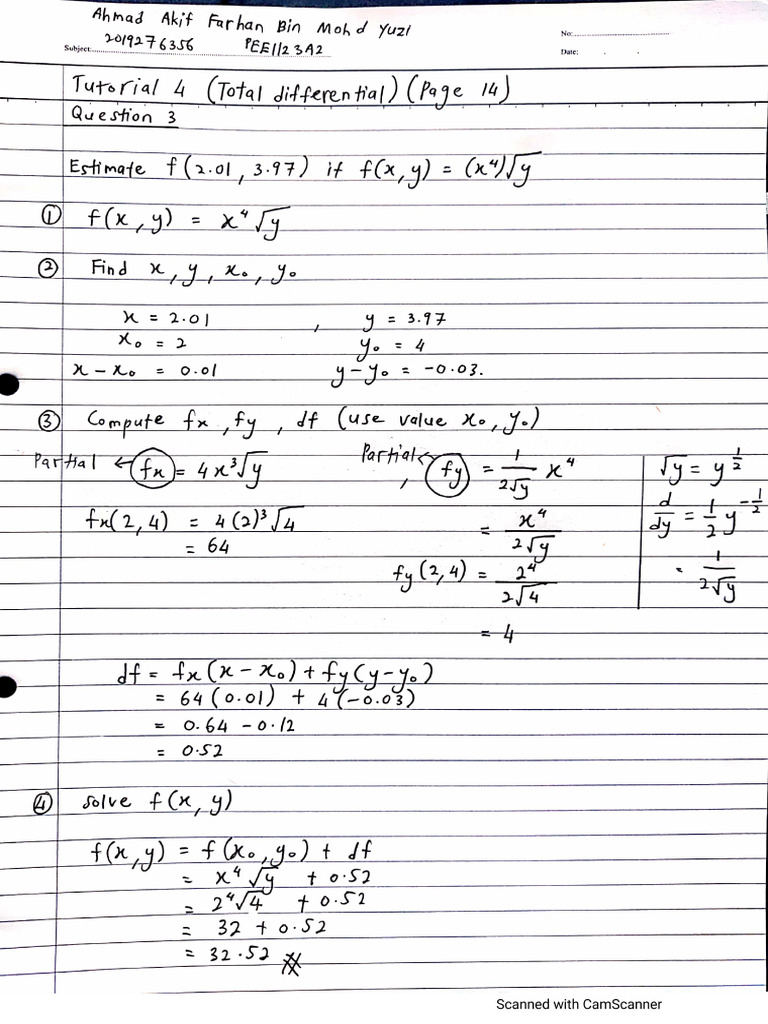 Ahmad Akif Farhan Bin Mohd Yuzi
No:
Subject: 2019276356 PEE1123A2
Date:
Tutorial 4 (Total differential) (Page 14)
Question 3
Estimate f(2.01, 3.97) if f(x,y) = (x⁴)√y
① f(x,y) = x⁴√y
② Find x, y, x₀, y₀
x = 2.01 , y = 3.97
x₀ = 2 y₀ = 4
x - x₀ = 0.01 y - y₀ = -0.03.
③ Compute fx, fy, df (use value x₀, y₀)
Partial ← fx = 4x³√y , Partial ← fy = 1/(2√y) x⁴
fx(2,4) = 4(2)³√4
= 64
= x⁴/(2√y)
fy(2,4) = 2⁴/(2√4)
= 4
√y = y^(1/2)
d/dy = 1/2 y^(-1/2)
= 1/(2√y)
df = fx(x - x₀) + fy(y - y₀)
= 64(0.01) + 4(-0.03)
= 0.64 - 0.12
= 0.52
④ solve f(x,y)
f(x,y) = f(x₀,y₀) + df
= x⁴√y + 0.52
= 2⁴√4 + 0.52
= 32 + 0.52
= 32.52
Scanned with CamScanner